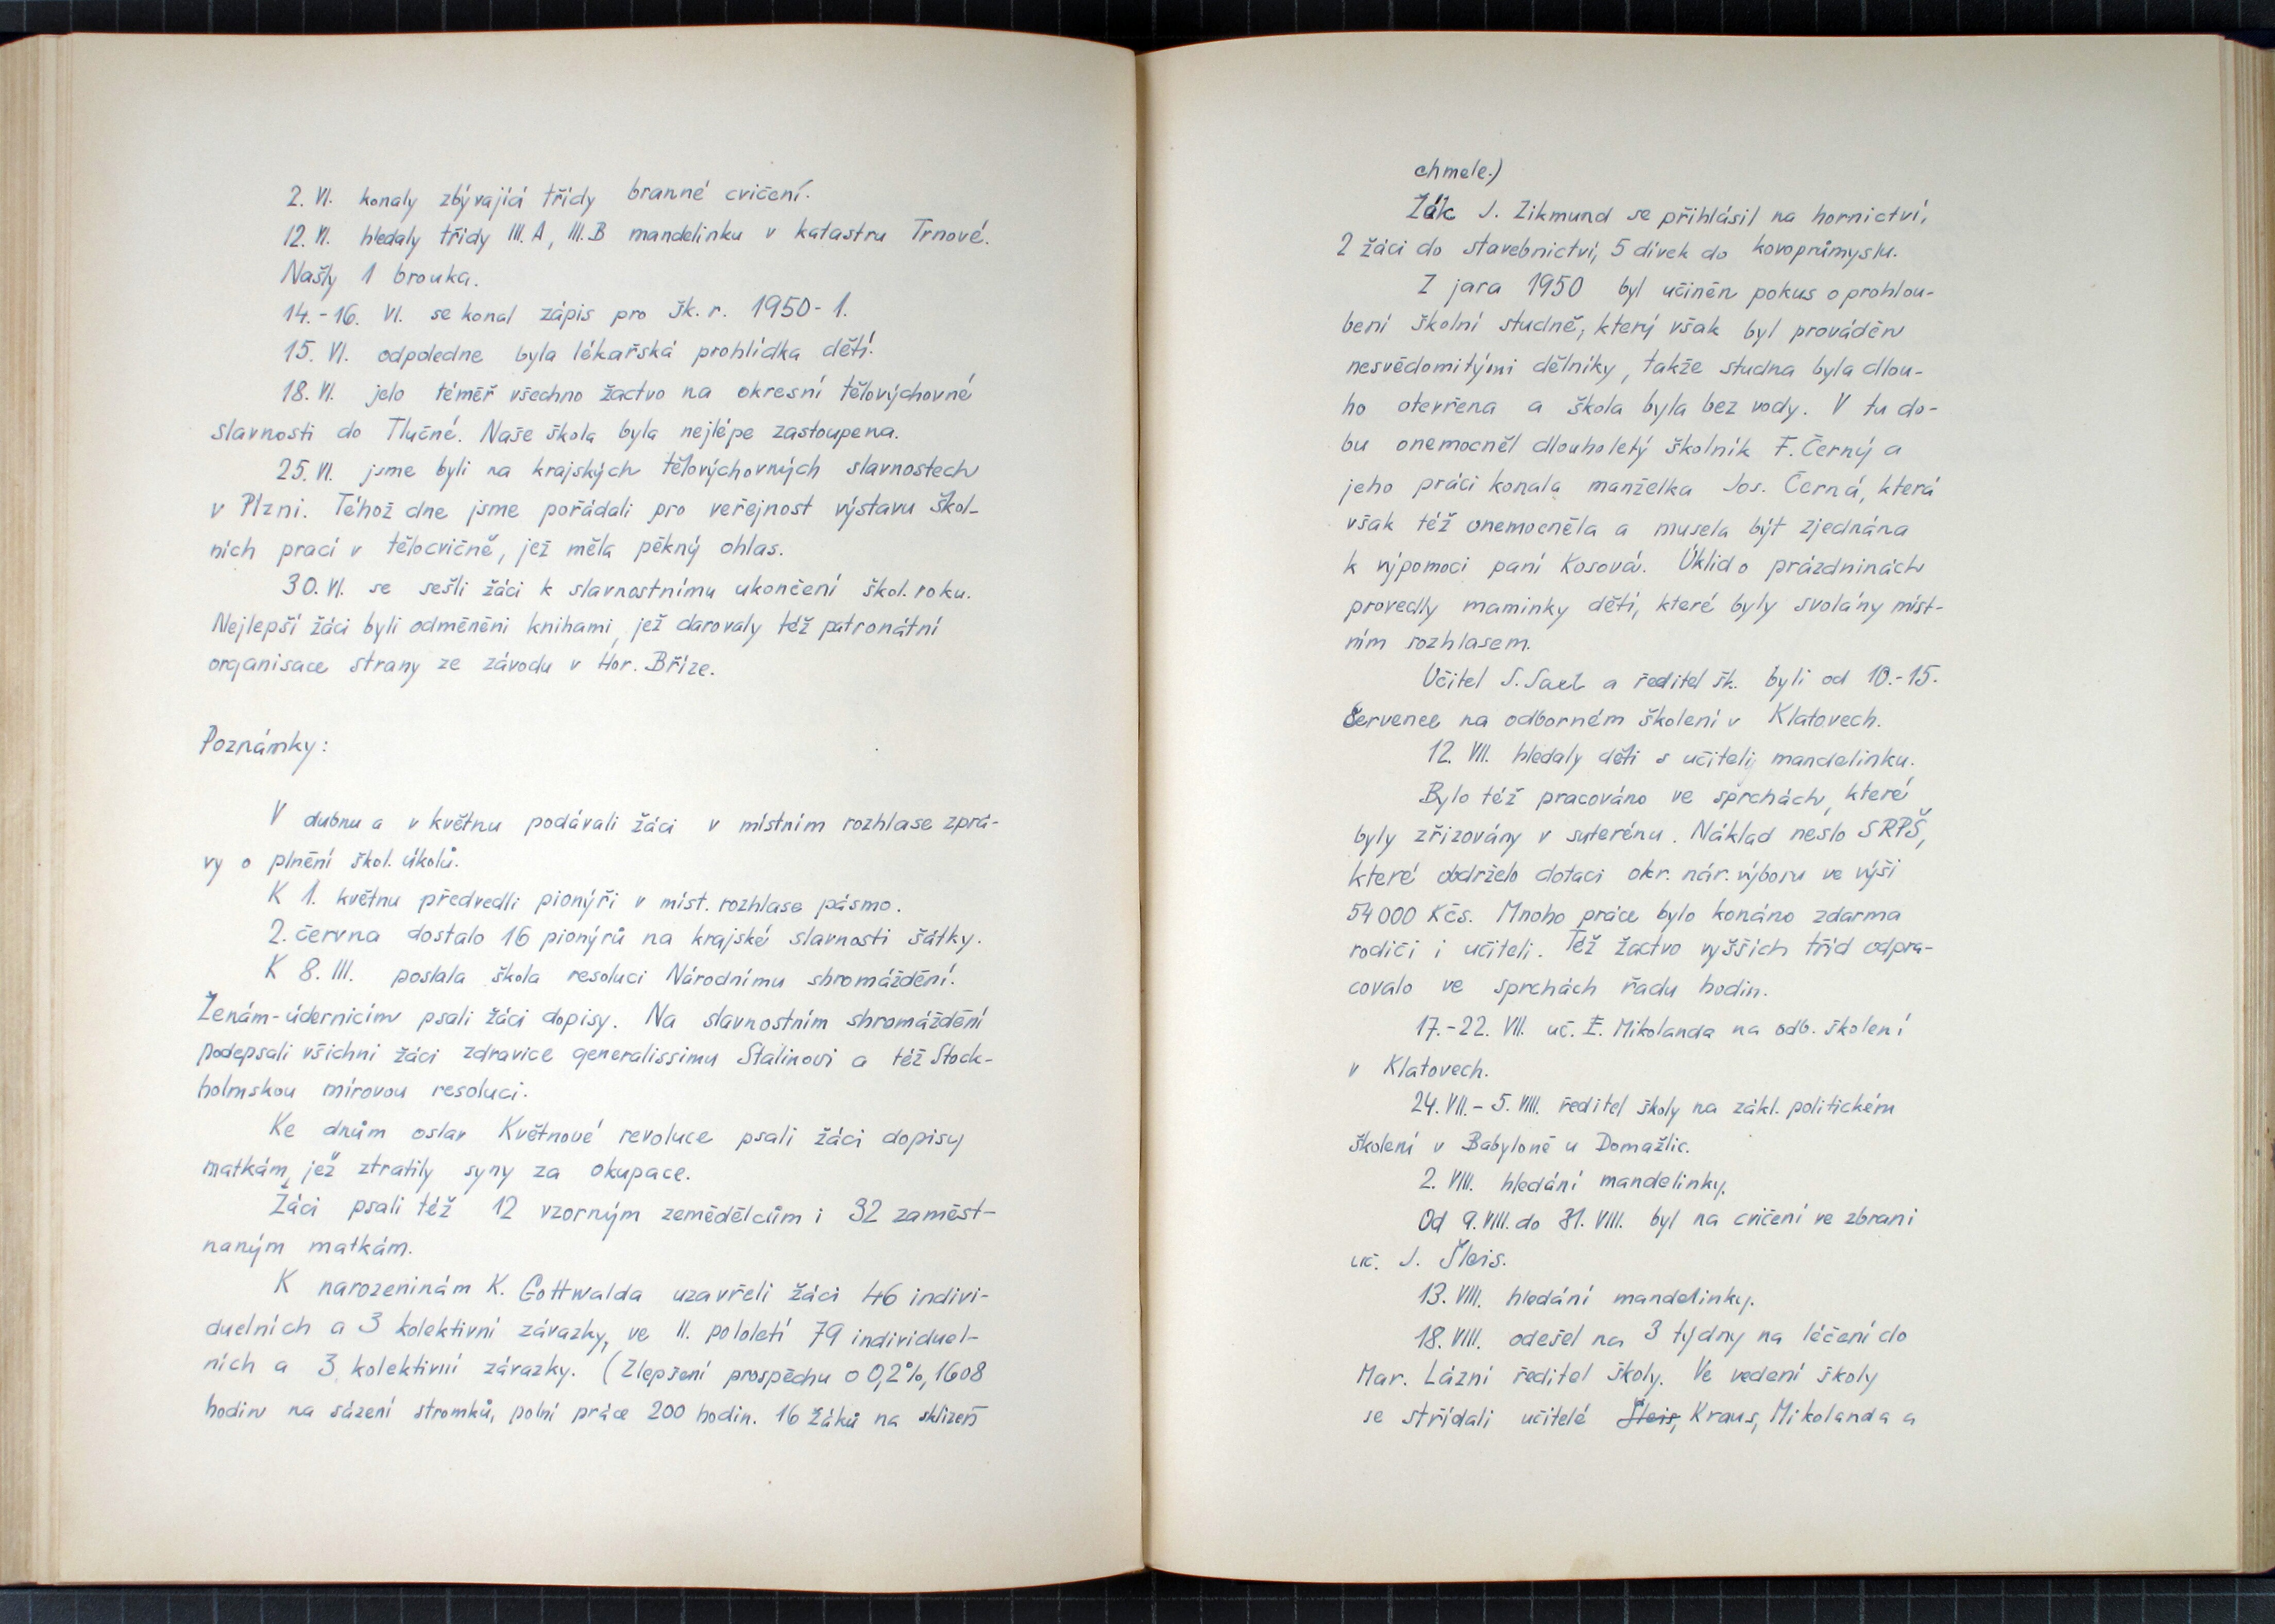 2. VI. konaly zbývající třídy branné cvičení.
12. VI. hledaly třídy III. A, III. B mandelinku v katastru Trnové.
Našly 1 brouka.
14.-16. VI. se konal zápis pro šk. r. 1950-1.
15. VI. odpoledne byla lékařská prohlídka dětí.
18. VI. jelo téměř všechno žactvo na okresní tělovýchovné
slavnosti do Tlučné. Naše škola byla nejlépe zastoupena.
25. VI. jsme byli na krajských tělovýchovných slavnostech
v Plzni. Téhož dne jsme pořádali pro veřejnost výstavu škol-
ních prací v tělocvičně, jež měla pěkný ohlas.
30. VI. se sešli žáci k slavnostnímu ukončení škol. roku.
Nejlepší žáci byli odměněni knihami, jež darovaly též patronátní
organisace strany ze závodu v Hor. Bříze.
Poznámky:
V dubnu a v květnu podávali žáci v místním rozhlase zprá-
vy o plnění škol. úkolů.
K 1. květnu předvedli pionýři v míst. rozhlase pásmo.
2. června dostalo 16 pionýrů na krajské slavnosti šátky.
K 8. III. poslala škola resoluci Národnímu shromáždění.
Ženám-údernicím psali žáci dopisy. Na slavnostním shromáždění
podepsali všichni žáci zdravice generalissimu Stalinovi a též Stock-
holmskou mírovou resoluci.
Ke dnům oslav Květnové revoluce psali žáci dopisy
matkám, jež ztratily syny za okupace.
Žáci psali též 12 vzorným zemědělcům i 32 zaměst-
naným matkám.
K narozeninám K. Gottwalda uzavřeli žáci 46 indivi-
duelních a 3 kolektivní závazky, ve II. pololetí 79 individuel-
ních a 3 kolektivní závazky. (Zlepšení prospěchu o 0,2%, 1608
hodin na sázení stromků, polní práce 200 hodin. 16 žáků na sklizeň
chmele.)
Žák J. Zikmund se přihlásil na hornictví,
2 žáci do stavebnictví, 5 dívek do kovoprůmyslu.
Z jara 1950 byl učiněn pokus o prohlou-
bení školní studně, který však byl prováděn
nesvědomitými dělníky, takže studna byla dlou-
ho otevřena a škola byla bez vody. V tu do-
bu onemocněl dlouholetý školník F. Černý a
jeho práci konala manželka Jos. Černá, která
však též onemocněla a musela být zjednána
k výpomoci paní Kosová. Úklid o prázdninách
provedly maminky dětí, které byly svolány míst-
ním rozhlasem.
Učitel S. Sael a ředitel šk. byli od 10.-15.
července na odborném školení v Klatovech.
12. VII. hledaly děti s učiteli mandelinku.
Bylo též pracováno ve sprchách, které
byly zřizovány v suterénu. Náklad neslo SRPŠ,
které obdrželo dotaci okr. nár. výboru ve výši
54 000 Kčs. Mnoho práce bylo konáno zdarma
rodiči i učiteli. Též žactvo vyšších tříd odpra-
covalo ve sprchách řadu hodin.
17.-22. VII. uč. F. Mikolanda na odb. školení
v Klatovech.
24. VII. - 5. VIII. ředitel školy na zákl. politickém
školení v Babyloně u Domažlic.
2. VIII. hledání mandelinky.
Od 9. VIII. do 31. VIII. byl na cvičení ve zbrani
uč. J. Šleis.
13. VIII. hledání mandelinky.
18. VIII. odešel na 3 týdny na léčení do
Mar. Lázní ředitel školy. Ve vedení školy
se střídali učitelé Šleis, Kraus, Mikolanda a